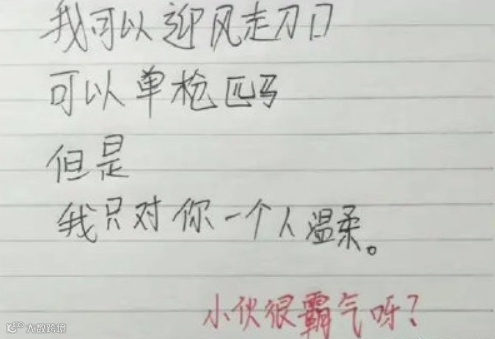 我可以迎风走刀口
可以单枪匹马
但是
我只对你一个人温柔。
小伙很霸气呀?